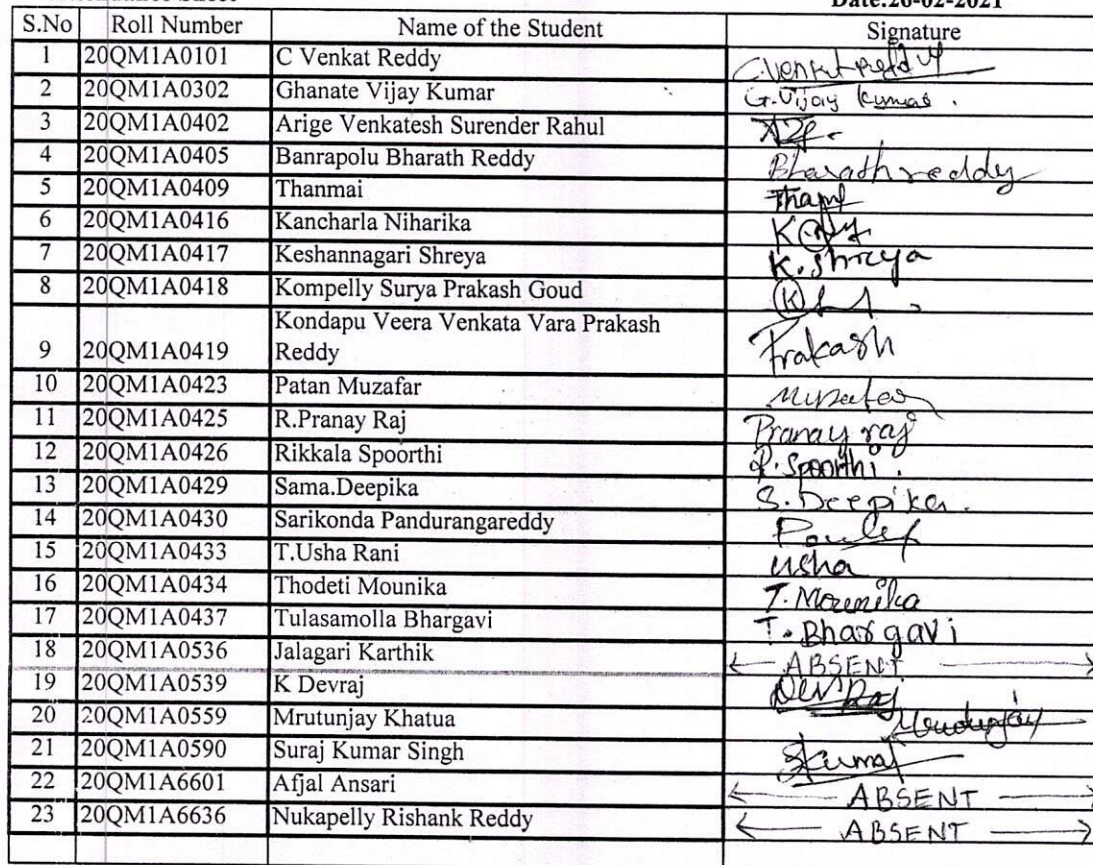 Date:26-02-2021
S.No Roll Number Name of the Student Signature
1 20QM1A0101 C Venkat Reddy C.Venkat Reddy
2 20QM1A0302 Ghanate Vijay Kumar G.Vijay Kumar.
3 20QM1A0402 Arige Venkatesh Surender Rahul
4 20QM1A0405 Banrapolu Bharath Reddy Bharathreddy
5 20QM1A0409 Thanmai
6 20QM1A0416 Kancharla Niharika
7 20QM1A0417 Keshannagari Shreya K.Shreya
8 20QM1A0418 Kompelly Surya Prakash Goud
Kondapu Veera Venkata Vara Prakash
9 20QM1A0419 Reddy Prakash
10 20QM1A0423 Patan Muzafar
11 20QM1A0425 R.Pranay Raj Pranay raj
12 20QM1A0426 Rikkala Spoorthi R.Spoorthi.
13 20QM1A0429 Sama.Deepika S.Deepika.
14 20QM1A0430 Sarikonda Pandurangareddy
15 20QM1A0433 T.Usha Rani usha
16 20QM1A0434 Thodeti Mounika T.Mounika
17 20QM1A0437 Tulasamolla Bhargavi T.Bhargavi
18 20QM1A0536 Jalagari Karthik ABSENT
19 20QM1A0539 K Devraj DevRaj
20 20QM1A0559 Mrutunjay Khatua
21 20QM1A0590 Suraj Kumar Singh Skumar
22 20QM1A6601 Afjal Ansari ABSENT
23 20QM1A6636 Nukapelly Rishank Reddy ABSENT